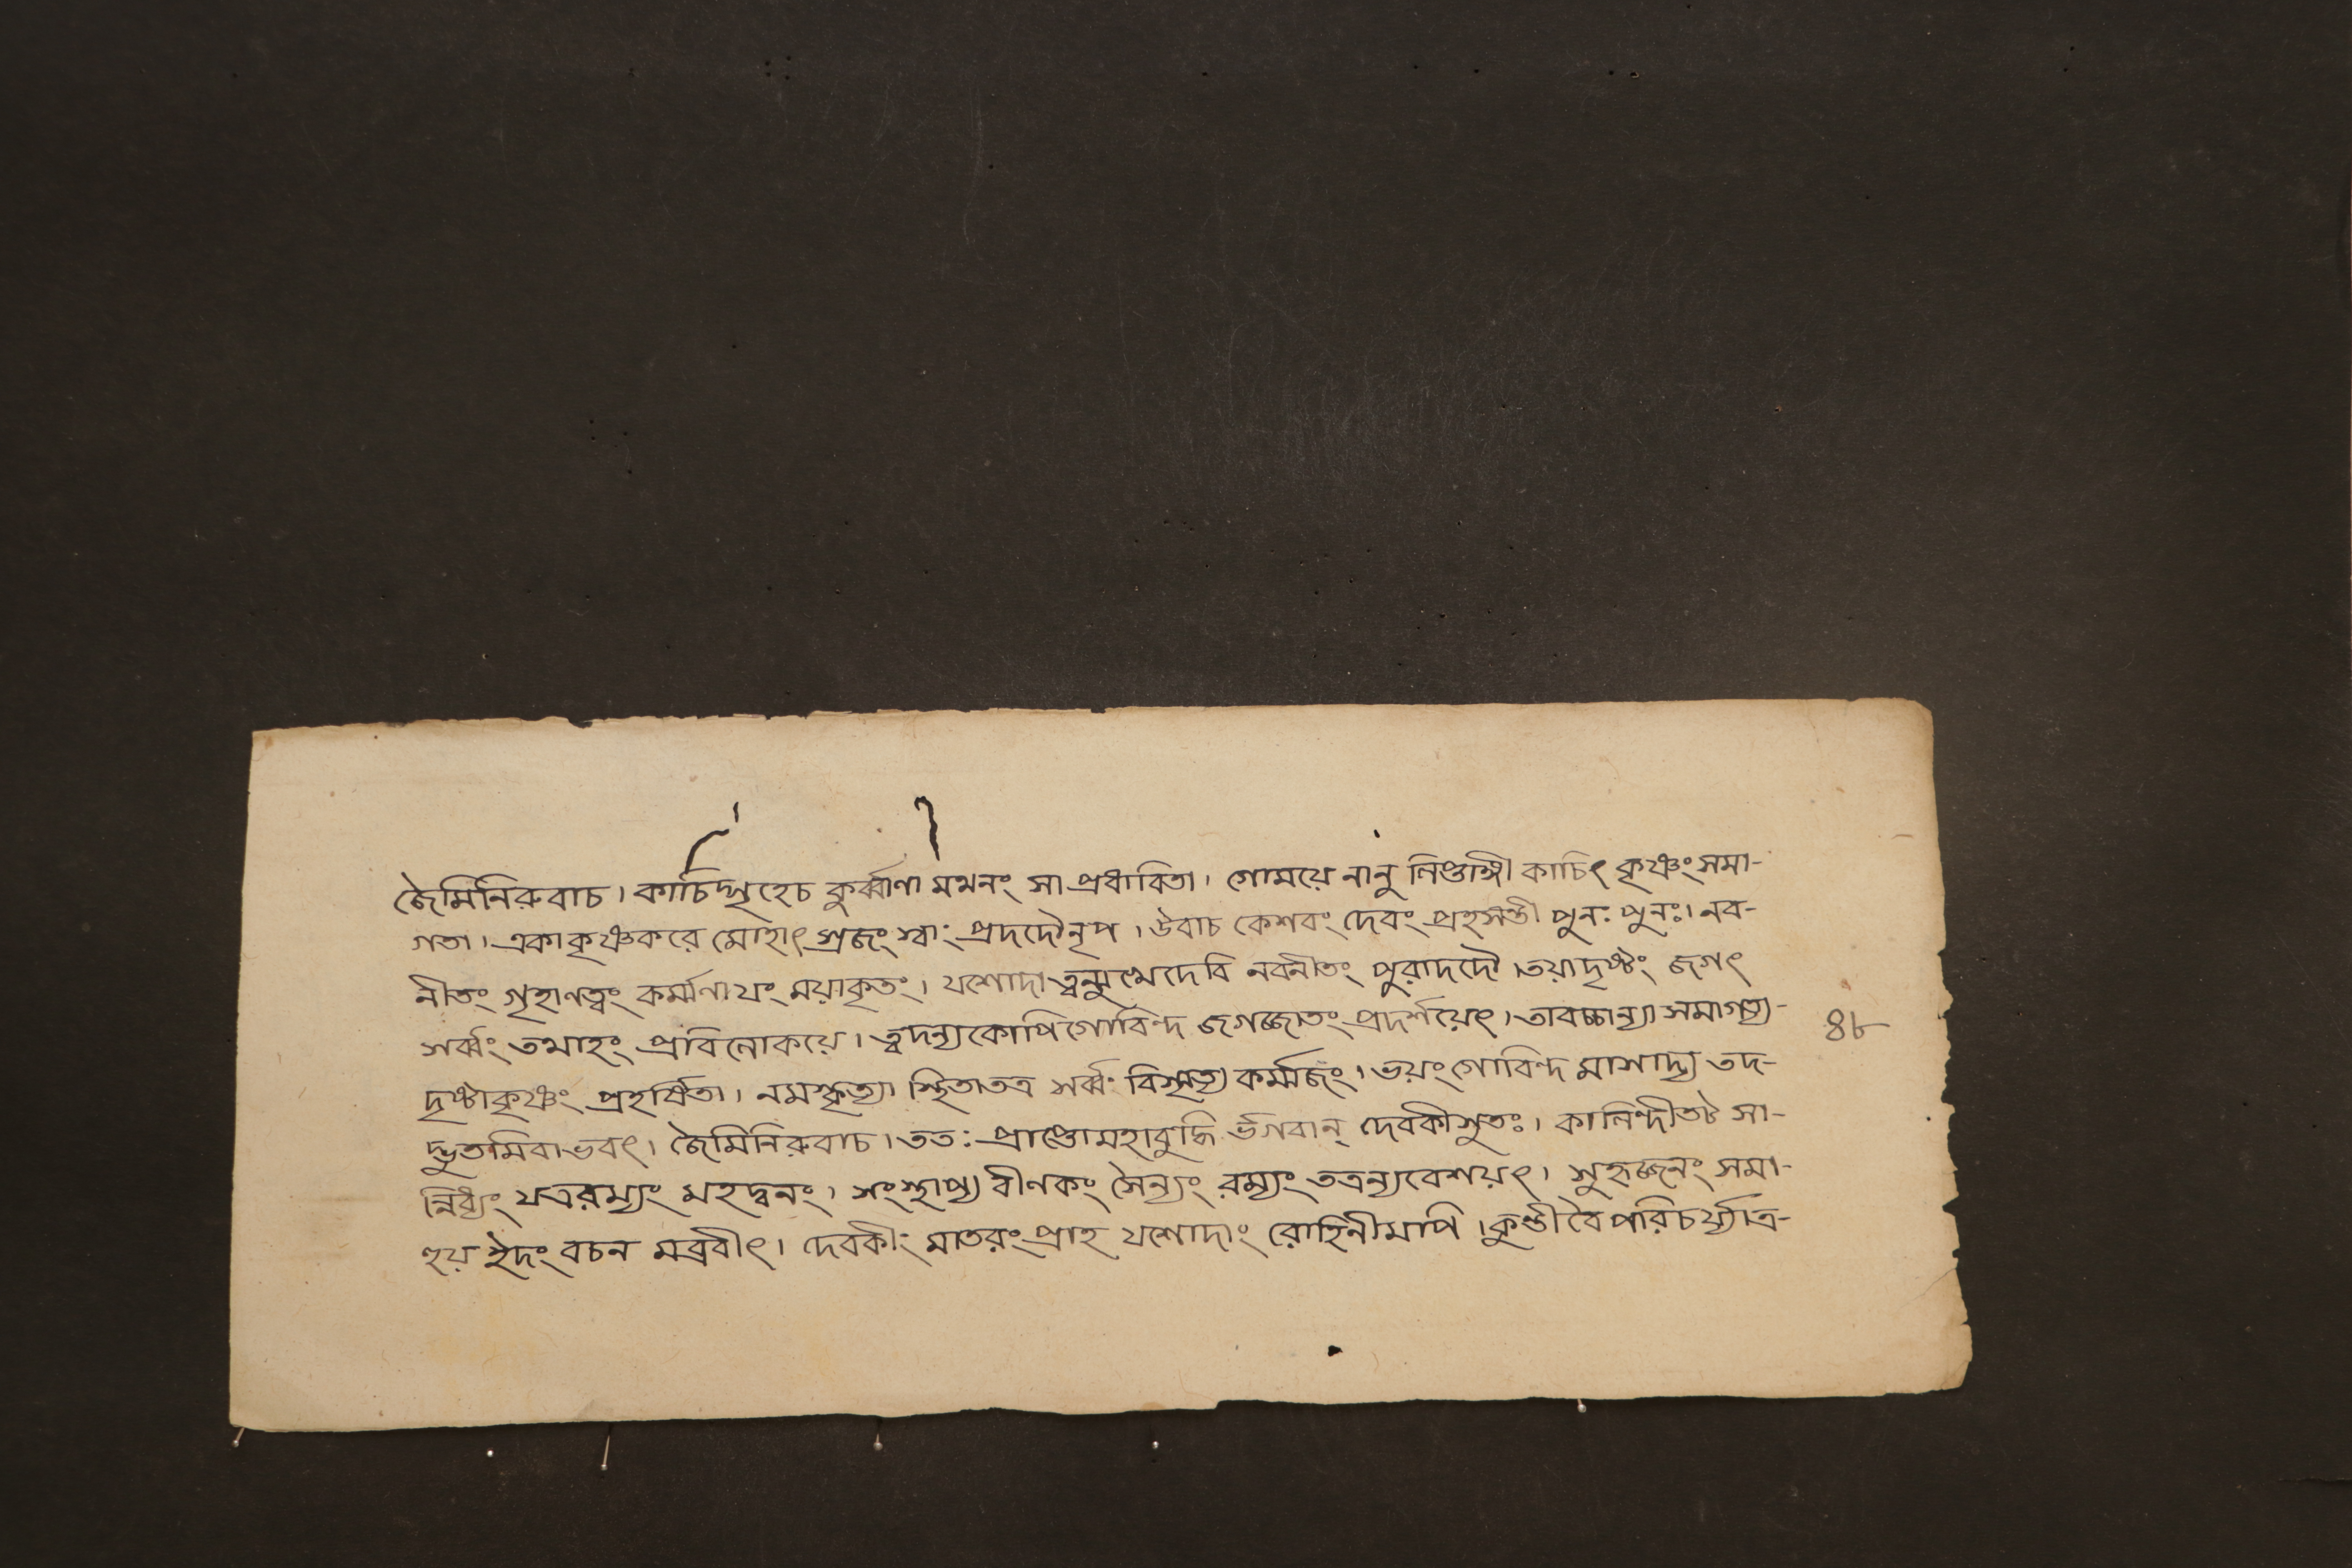 জৈমিনিরুবাচ। কাচিদ্গৃহেচ কুর্ব্বাণা মথনং সা প্রধাবিতা। গোময়েনানুলিপ্তাঙ্গী কাচিৎ কৃষ্ণং সমা-
গতা। একা কৃষ্ণকরে মোহাৎ স্রজং স্বাং প্রদদৌ নৃপ। উবাচ কেশবং দেবং প্রহসন্তী পুনঃ পুনঃ। নব-
নীতং গৃহাণত্বং কর্ম্মণাযং ময়াকৃতং। যশোদা ত্বন্মুখেদেবি নবনীতং পুরাদদৌ। তয়াদৃষ্টং জগৎ
সর্ব্বং তথাহং প্রবিলোকয়ে। ত্বদন্যকোপিগোবিন্দ জগজ্জাতং প্রদর্শয়েৎ। তাবচ্চান্যা সমাগত্য-
দৃষ্টাকৃষ্ণং প্রহর্ষিতা। নমস্কৃত্যা স্থিতাতত্র সর্ব্বং বিস্মৃত্য কর্ম্মজং। ভয়ং গোবিন্দ মাসাদ্য তদ-
দ্ভুতমিবাভবৎ। জৈমিনিরুবাচ। ততঃ প্রাপ্তোমহাবুদ্ধি র্ভগবান্ দেবকীসুতঃ। কালিন্দীতট সা-
ন্নিধ্যং যত্ররম্যং মহদ্বনং। সংস্থাপ্য বীণকং সৈন্যং রম্যং তত্রন্যবেশয়ৎ। সুহৃজ্জনং সমা-
হূয় ইদং বচন মব্রবীৎ। দেবকীং মাতরং প্রাহ যশোদাং রোহিনীমপি। কুন্তী বৈ পরিচর্য্যাত্র-
৪৮